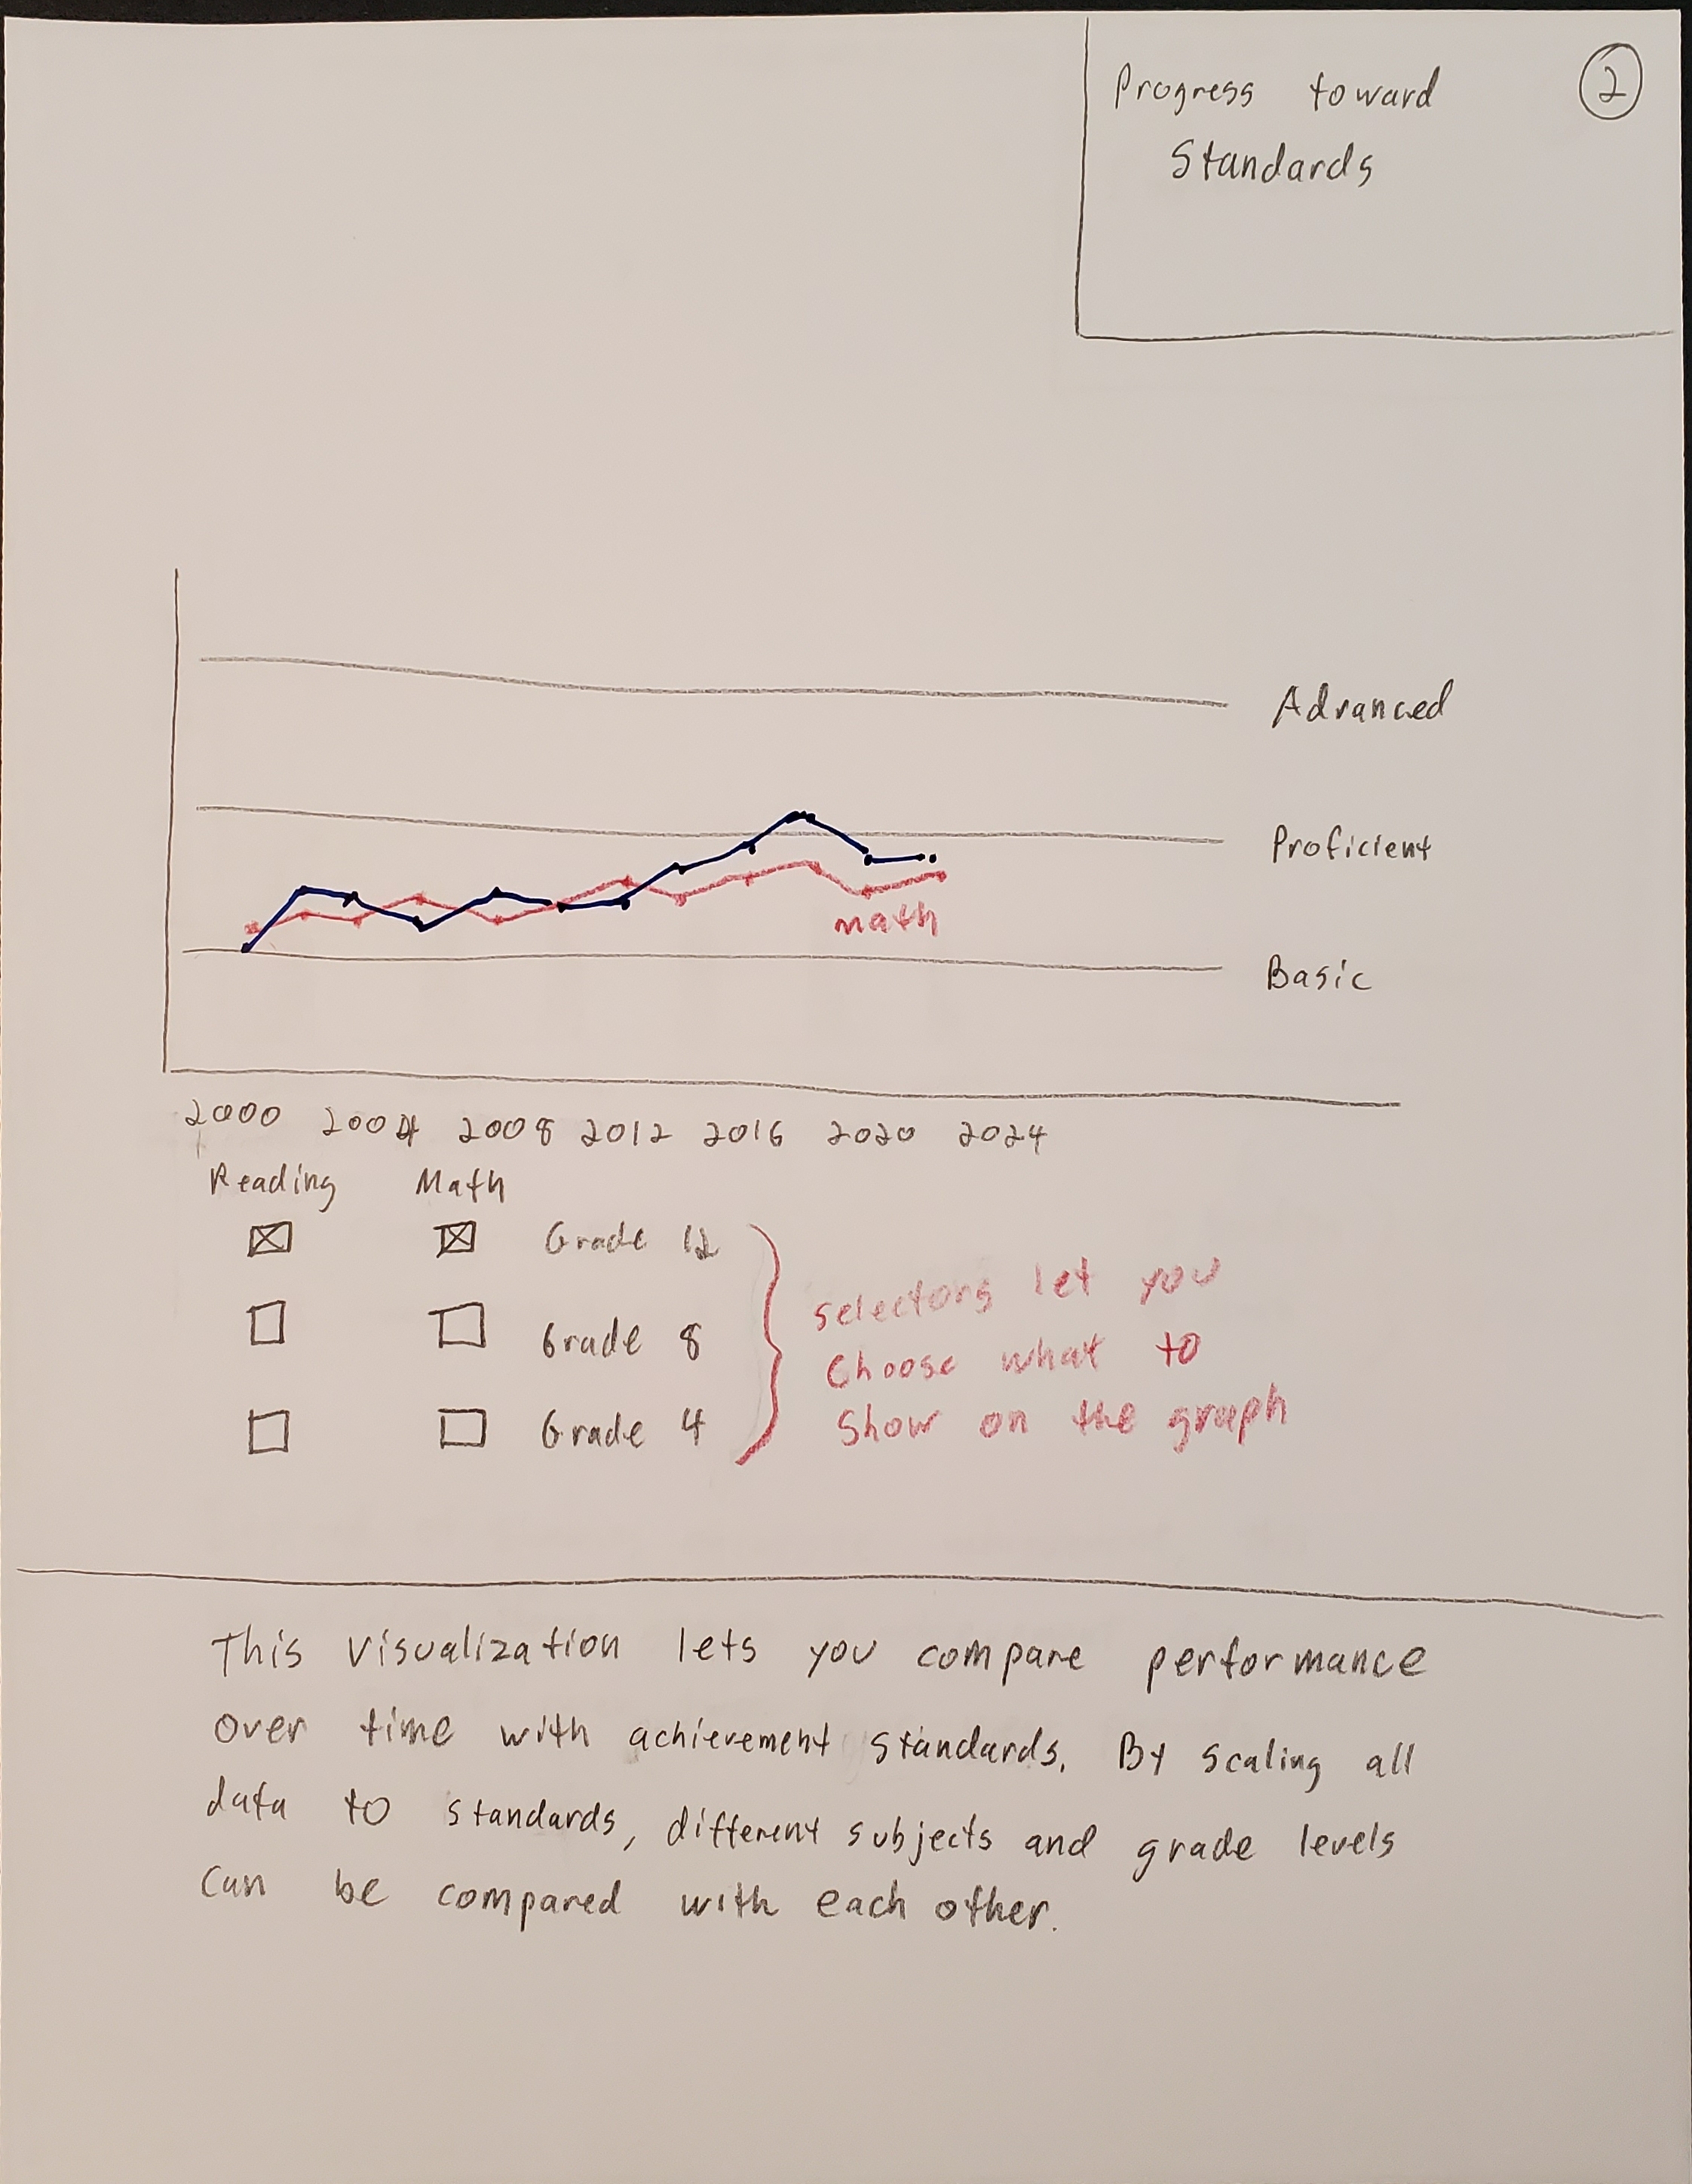 Progress toward
Standards
2
Advanced
Proficient
math
Basic
2000 2004 2008 2012 2016 2020 2024
Reading Math
Grade 12
Grade 8
Grade 4
selectors let you
Choose what to
Show on the graph
This visualization lets you compare performance
over time with achievement standards. By scaling all
data to standards, different subjects and grade levels
can be compared with each other.